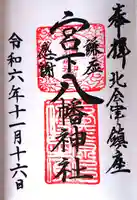 奉拝 北会津鎮座
宮下八幡神社
令和六年十一月十六日